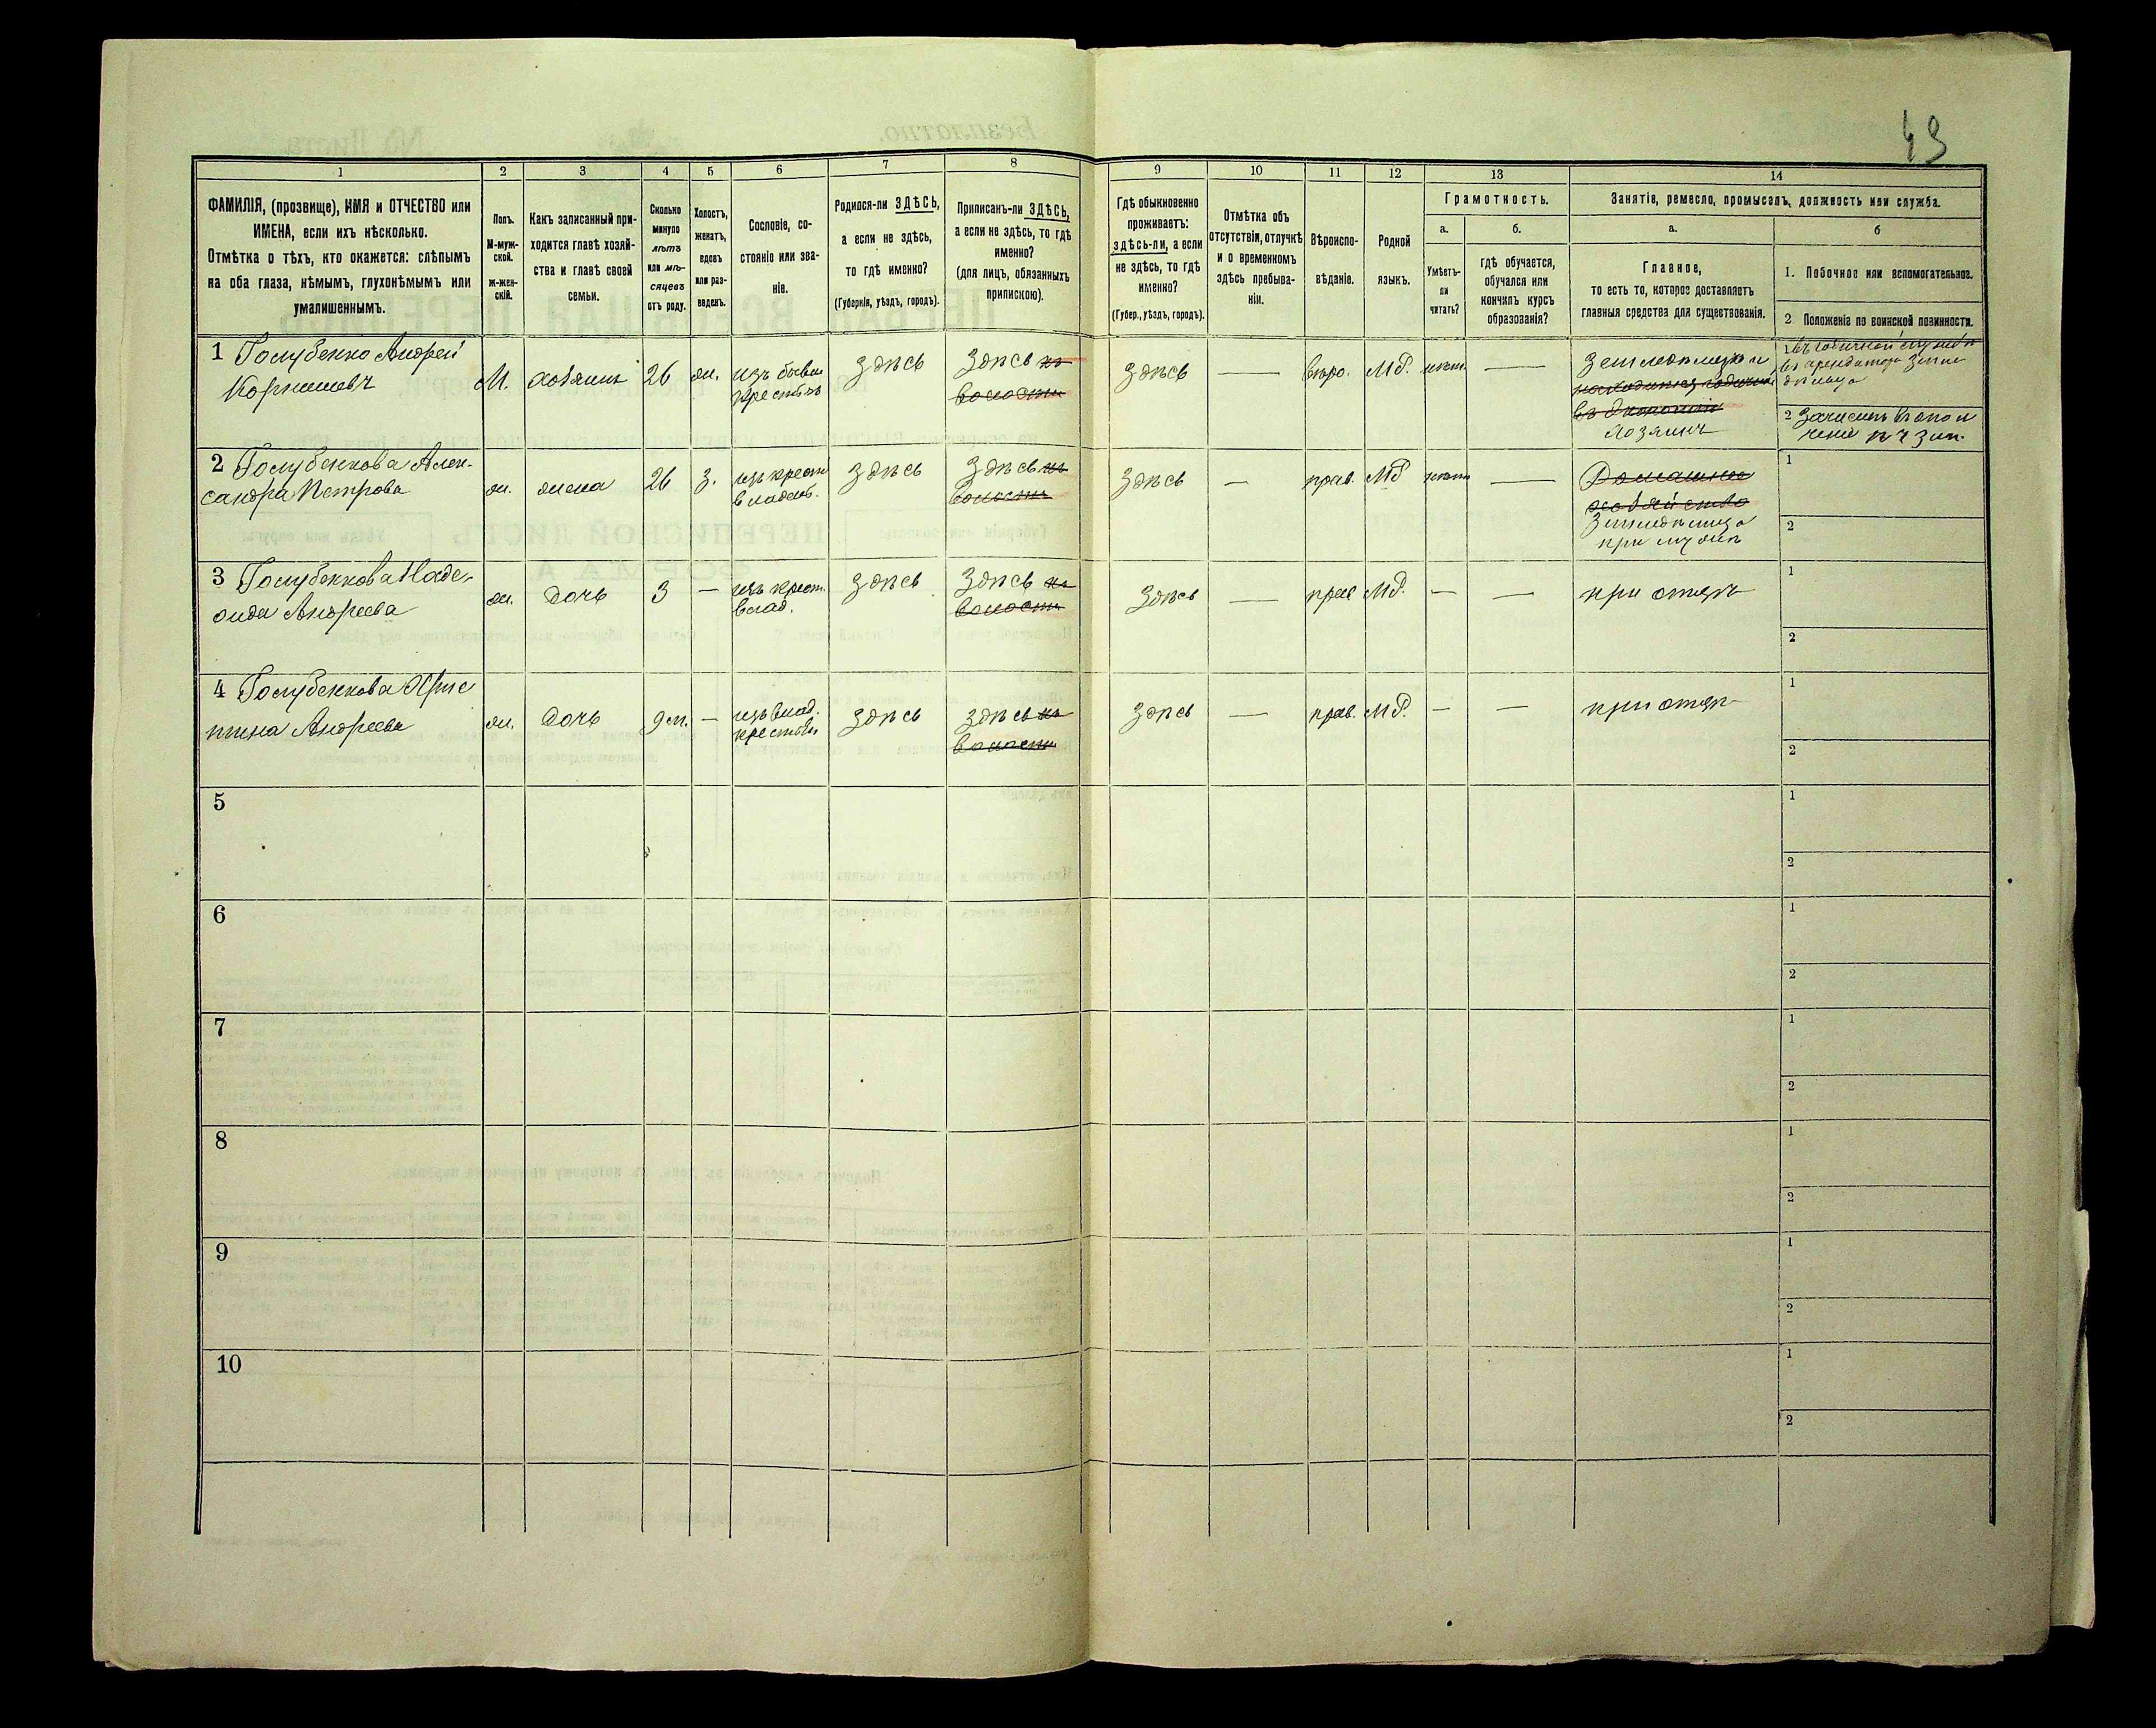 49
1
2
3
4
5
6
7
8
9
10
11
12
13
14
ФАМИЛІЯ, (прозвище), ИМЯ и ОТЧЕСТВО или
ИМЕНА, если ихъ нѣсколько.
Отмѣтка о тѣхъ, кто окажется: слѣпымъ
на оба глаза, нѣмымъ, глухонѣмымъ или
умалишеннымъ.
Полъ.
М-муж-
ской.
ж-жен-
скій.
Какъ записанный при-
ходится главѣ хозяй-
ства и главѣ своей
семьи.
Сколько
минуло
лѣтъ
или мѣ-
сяцевъ
отъ роду.
Холостъ,
женатъ,
вдовъ
или раз-
веденъ.
Сословіе, со-
стояніе или зва-
ніе.
Родился-ли ЗДѢСЬ,
а если не здѣсь,
то гдѣ именно?
(Губернія, уѣздъ, городъ).
Приписанъ-ли ЗДѢСЬ,
а если не здѣсь, то гдѣ
именно?
(для лицъ, обязанныхъ
припискою).
Гдѣ обыкновенно
проживаетъ:
здѣсь-ли, а если
не здѣсь, то гдѣ
именно?
(Губер., уѣздъ, городъ).
Отмѣтка объ
отсутствіи, отлучкѣ
и о временномъ
здѣсь пребыва-
ніи.
Вѣроиспо-
вѣданіе.
Родной
языкъ.
Грамотность.
а.
Умѣетъ-
ли
читать?
б.
гдѣ обучается,
обучался или
кончилъ курсъ
образованія?
Занятіе, ремесло, промыселъ, должность или служба.
а.
Главное,
то есть то, которое доставляетъ
главныя средства для существованія.
б
1. Побочное или вспомогательное.
2 Положеніе по воинской повинности.
1 Голубенко Андрей
Корнишевъ
М.
хозяинъ
26
ж.
изъ бывш
крестьянъ
здѣсь
Здѣсь въ
волости
здѣсь
—
МР.
нѣтъ
—
Землевладѣлец
въ экономіи
хозяинъ
1
2 Зачисленъ въ опол
ченіе
2 Голубенкова Алек-
сандра Петрова
ж.
жена
26
З.
изъ крест
владѣл.
здѣсь
Здѣсь въ
волости
Здѣсь
—
прав.
МР
нѣтъ
—
Домашнее
хозяйство
Земледѣлица
при мужѣ
1
2
3 Голубенкова Наде-
жда Андреева
ж.
дочь
3
—
изъ крест.
влад.
здѣсь
Здѣсь въ
волости
Здѣсь
—
прав
МР.
—
—
при отцѣ
1
2
4 Голубенкова Хрис
тина Андреева
ж.
дочь
9 м.
—
изъ влад.
крестьян
здѣсь
здѣсь въ
волости
Здѣсь
—
прав.
МР.
—
—
при отцѣ
1
2
5
1
2
6
1
2
7
1
2
8
1
2
9
1
2
10
1
2